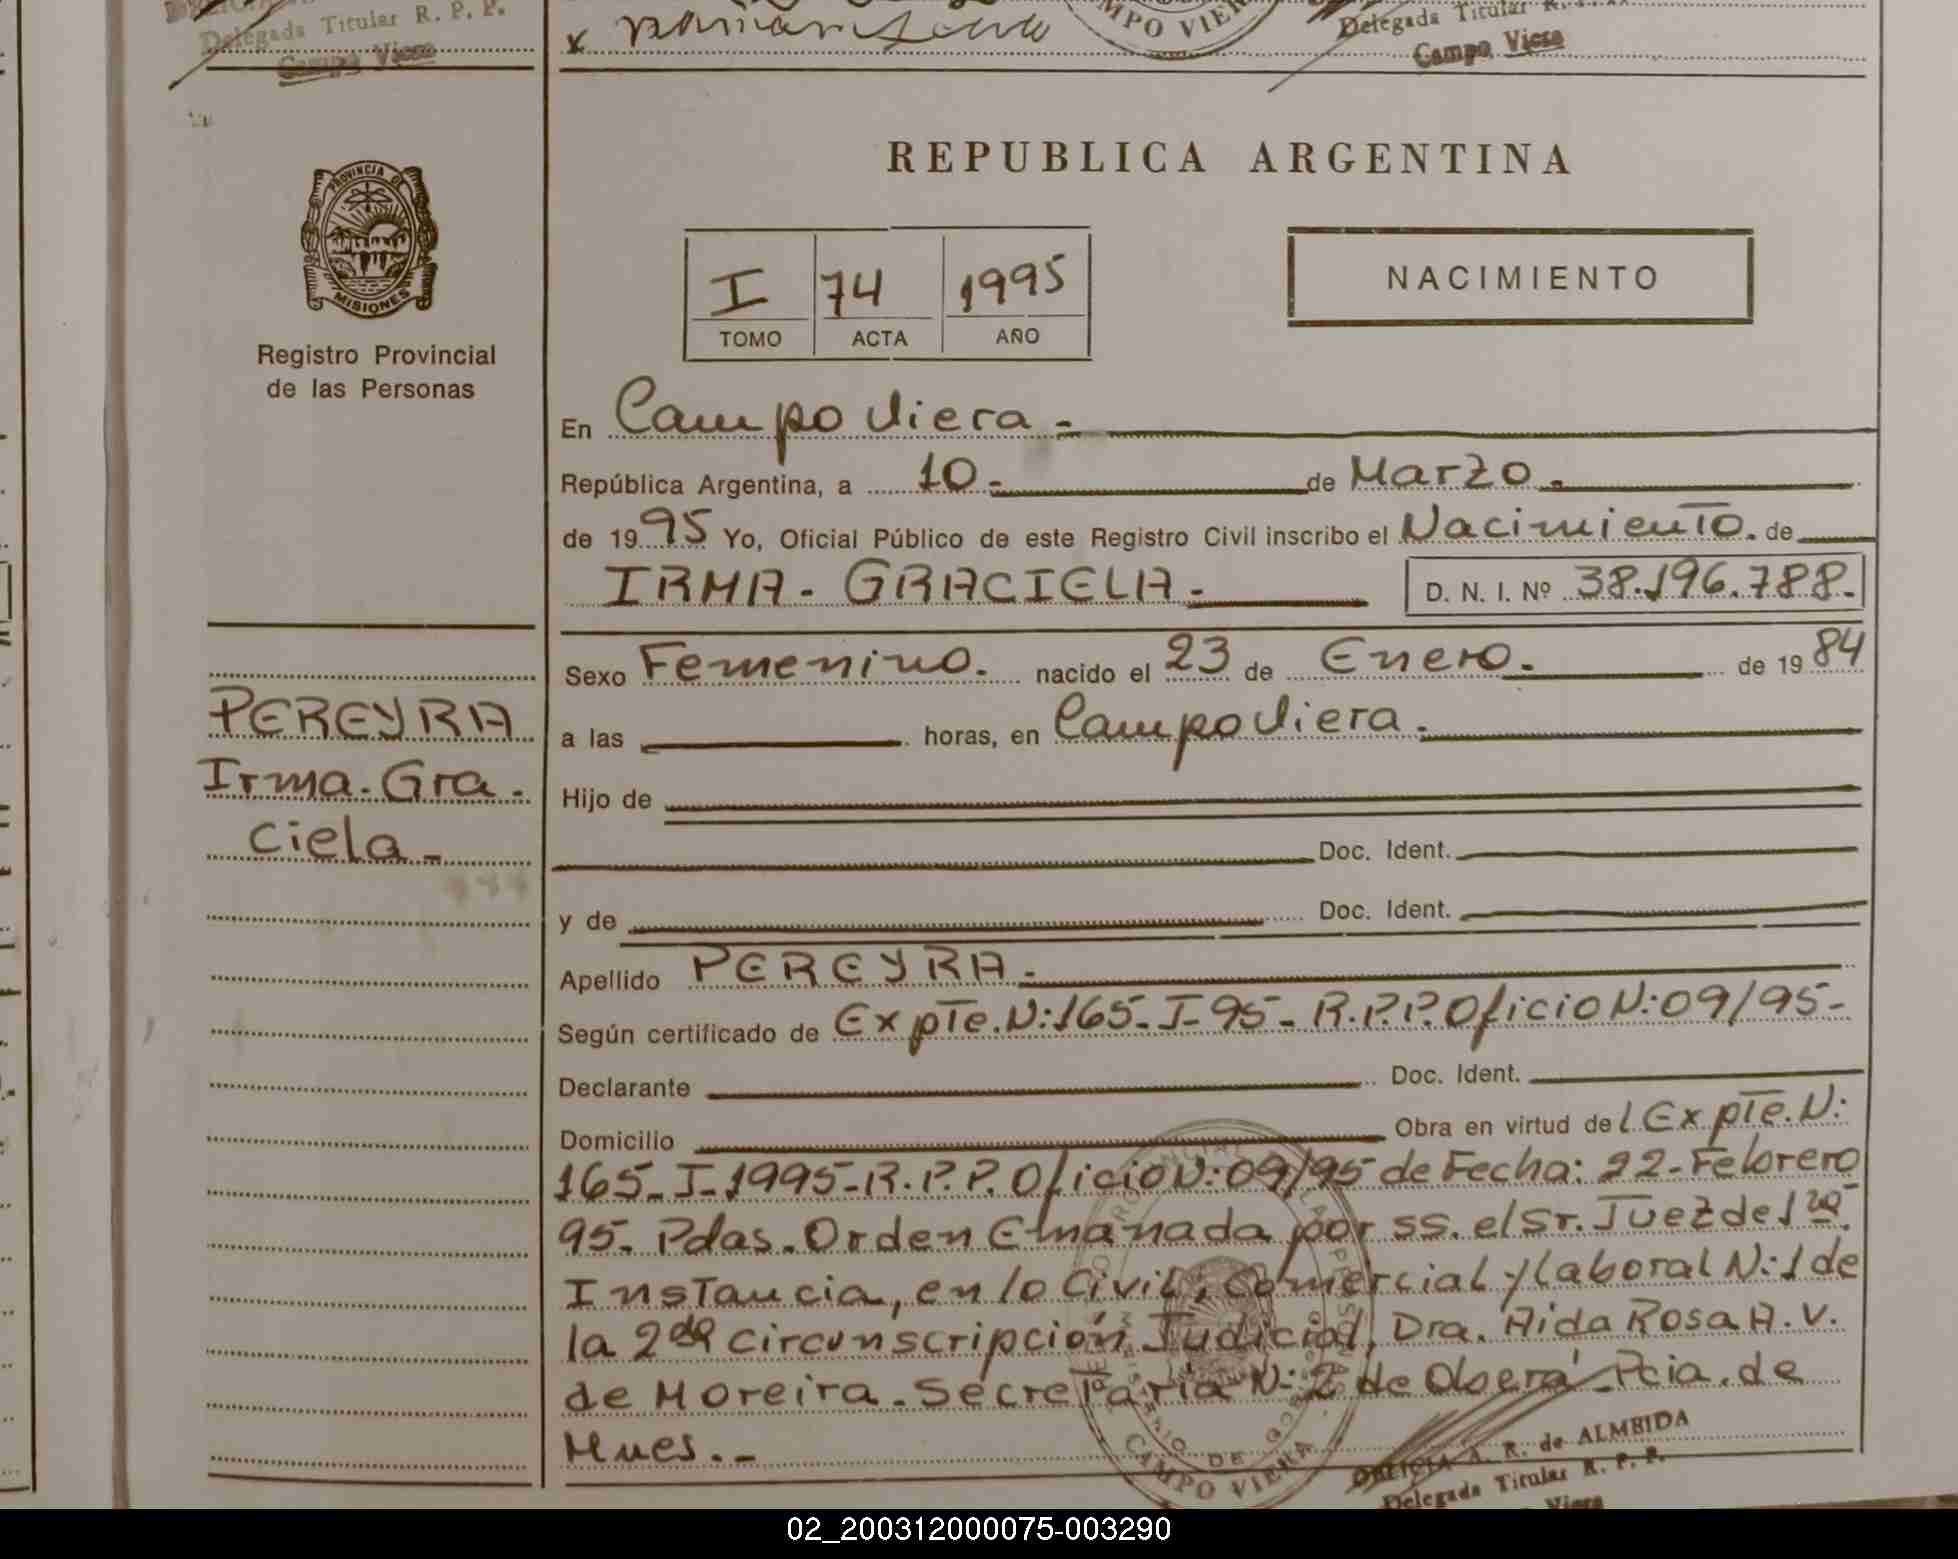 Delegada Titular R. P. P.
Campo Viera
x
CAMPO VIERA
Delegada Titular R. P. P.
Campo Viera
PROVINCIA DE
MISIONES
Registro Provincial
de las Personas
REPUBLICA ARGENTINA
I 74 1995
TOMO ACTA AÑO
NACIMIENTO
En Campo Viera.-
República Argentina, a 10.- de Marzo.
de 1995 Yo, Oficial Público de este Registro Civil inscribo el Nacimiento. de
IRMA - GRACIELA.- D. N. I. Nº 38.196.788.
Sexo Femenino. nacido el 23 de Enero. de 1984
a las horas, en Campo Viera.
Hijo de
Doc. Ident.
y de Doc. Ident.
Apellido PEREYRA.
Según certificado de Expte.N:165-I-95-R.P.P.Oficio N:09/95-
Declarante Doc. Ident.
Domicilio Obra en virtud del Expte.N:
165-I-1995-R.P.P.Oficio N:09/95 de Fecha: 22-Febrero
95- Pdas. Orden Emanada por ss. el Sr. Juez de 1ra.
Instancia, en lo Civil, Comercial y Laboral N:1 de
la 2da Circunscripción Judicial, Dra. Aida Rosa A.V.
de Moreira. Secretaría N:2 de Oberá Pcia. de
Mnes.-
PEREYRA
Irma.Gra-
ciela-
CAMPO VIERA
DELICIA A. R. de ALMEIDA
Delegada Titular R. P. P.
Viera
02_200312000075-003290